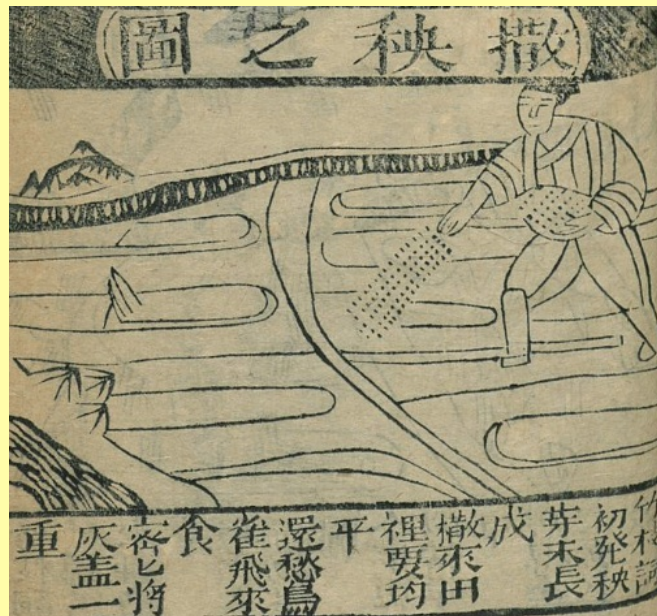 撒秧之圖
竹枝詞
初発秧
芽未長
成
撒來田
裡要均
平
還愁鳥
雀飛來
食
密匕將
灰盖一
重